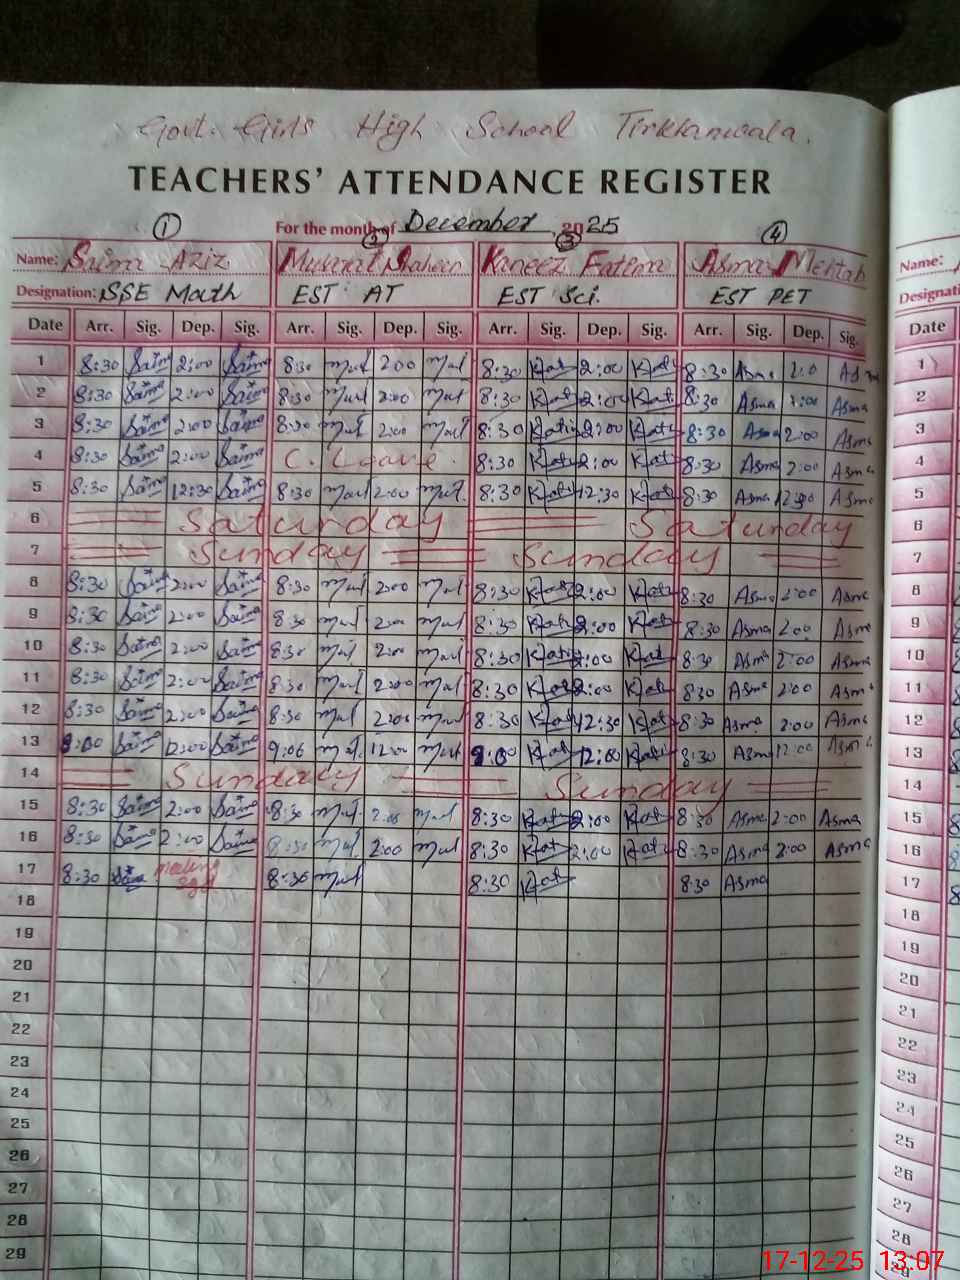 Govt. Girls High School Tirkhanwala.
TEACHERS' ATTENDANCE REGISTER
For the month of December, 2025
① ② ③ ④
Name: Saima Aziz Musrat Shaheen Kaneez Fatima Asma Mehtab Name:
Designation: SSE Math EST AT EST Sci. EST PET
Date Arr. Sig. Dep. Sig. Arr. Sig. Dep. Sig. Arr. Sig. Dep. Sig. Arr. Sig. Dep. Sig. Date
1 8:30 Saima 2:00 Saima 8:30 mul 2:00 mul 8:30 Kat 2:00 Kat 8:30 Asma 2:0 Asma 1
2 8:30 Saima 2:00 Saima 8:30 mul 2:00 mul 8:30 Kat 2:00 Kat 8:30 Asma 2:00 Asma 2
3 8:30 Saima 2:00 Saima 8:30 mul 2:00 mul 8:30 Kat 2:00 Kat 8:30 Asma 2:00 Asma 3
4 8:30 Saima 2:00 Saima C. Leave. 8:30 Kat 2:00 Kat 8:30 Asma 2:00 Asma 4
5 8:30 Saima 12:30 Saima 8:30 mul 2:00 mul 8:30 Kat 12:30 Kat 8:30 Asma 12:30 Asma 5
6 Saturday Saturday 6
7 Sunday Sunday 7
8 8:30 Saima 2:00 Saima 8:30 mul 2:00 mul 8:30 Kat 2:00 Kat 8:30 Asma 2:00 Asma 8
9 8:30 Saima 2:00 Saima 8:30 mul 2:00 mul 8:30 Kat 2:00 Kat 8:30 Asma 2:00 Asma 9
10 8:30 Saima 2:00 Saima 8:30 mul 2:00 mul 8:30 Kat 2:00 Kat 8:30 Asma 2:00 Asma 10
11 8:30 Saima 2:00 Saima 8:30 mul 2:00 mul 8:30 Kat 2:00 Kat 8:30 Asma 2:00 Asma 11
12 8:30 Saima 2:00 Saima 8:30 mul 2:00 mul 8:30 Kat 12:30 Kat 8:30 Asma 2:00 Asma 12
13 9:00 Saima 12:00 Saima 9:06 mul 12:00 mul 9:00 Kat 12:00 Kat 8:30 Asma 12:00 Asma 13
14 Sunday Sunday 14
15 8:30 Saima 2:00 Saima 8:30 mul 2:00 mul 8:30 Kat 2:00 Kat 8:30 Asma 2:00 Asma 15
16 8:30 Saima 2:00 Saima 8:30 mul 2:00 mul 8:30 Kat 2:00 Kat 8:30 Asma 2:00 Asma 16
17 8:30 Saima 8:30 mul 8:30 Kat 8:30 Asma 17
18 18
19 19
20 20
21 21
22 22
23 23
24 24
25 25
26 26
27 27
28 28
29
17-12-25 13:07